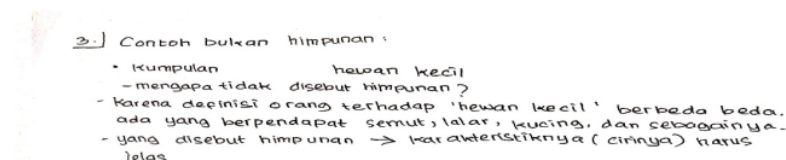 3. Contoh bukan himpunan :
• Kumpulan hewan kecil
- mengapa tidak disebut himpunan ?
- Karena definisi orang terhadap 'hewan kecil' berbeda beda.
ada yang berpendapat semut, lalar, kucing, dan sebagainya.
- yang disebut himpunan → karakteristiknya ( cirinya) harus
jelas